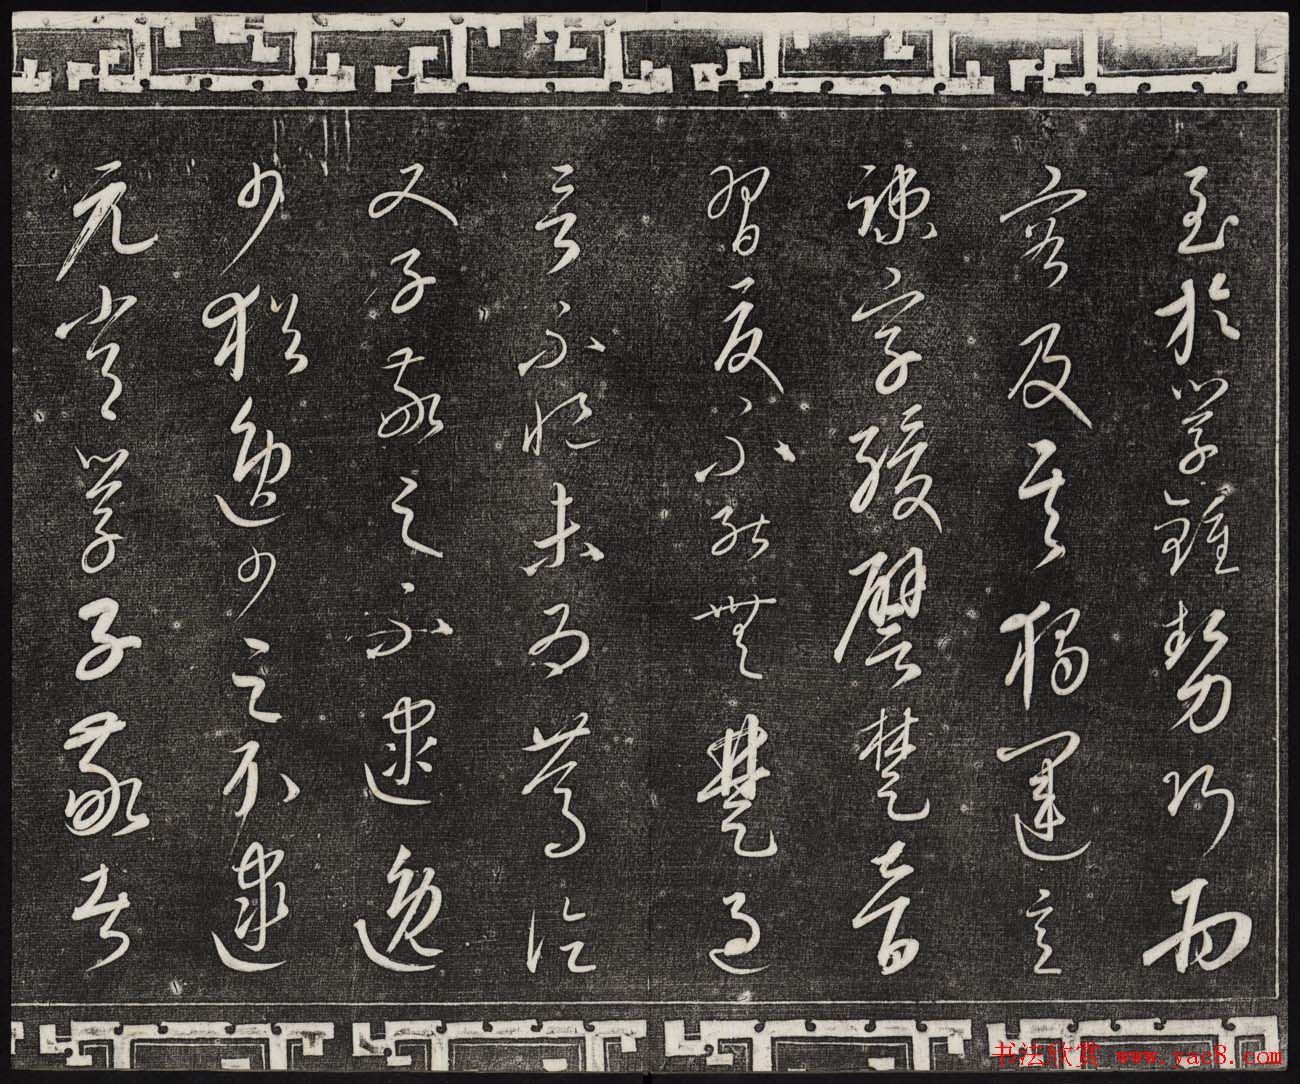 至於學鍾勢巧而
密及其獨運意
疎字緩譬楚音
習夏不能無楚過
言不悒未為篤論
又子敬之不逮逸
少猶逸少之不逮
元常學子敬者
书法欣赏 www.yac8.com